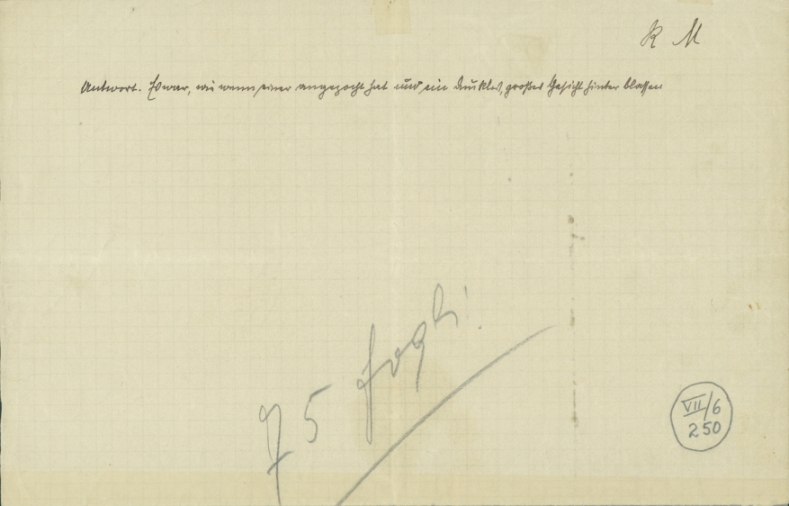 R M
Antwort. Es war, wie wenn einer angepocht hat und ein dunkles, großes Gesicht hinter blassen
75
VII/6
250